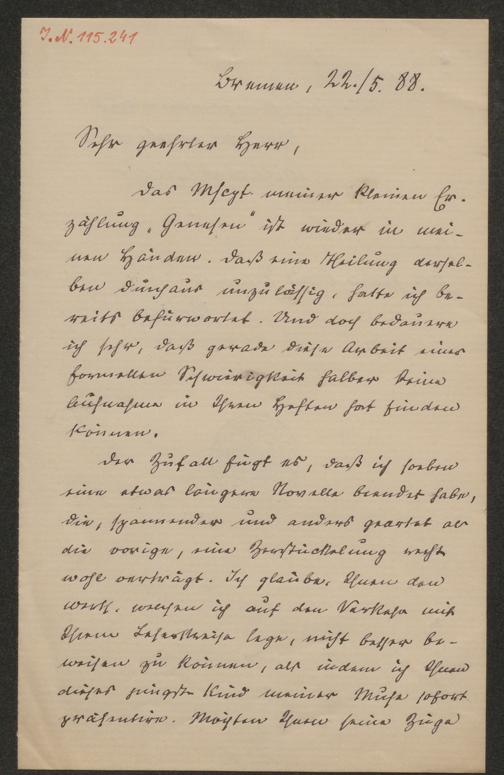 J.N. 115.241
Bremen, 22./5. 88.
Sehr geehrter Herr,
Das Mscpt. meiner kleinen Er-
zählung „Genesen“ ist wieder in mei-
nen Händen. Daß eine Theilung dersel-
ben durchaus unzulässig, hatte ich be-
reits befürwortet. Und doch bedauere
ich sehr, daß gerade diese Arbeit einer
formellen Schwierigkeit halber keine
Aufnahme in Ihren Heften hat finden
können.
Der Zufall fügt es, daß ich soeben
eine etwas längere Novelle beendet habe,
die, spannender und anders geartet als
die vorige, eine Zerstückelung recht
wohl verträgt. Ich glaube, Ihnen den
Werth, welchen ich auf den Verkehr mit
Ihrem Leserkreise lege, nicht besser be-
weisen zu können, als indem ich Ihnen
dieses jüngste Kind meiner Muse sofort
präsentire. Möchten Ihnen seine Züge